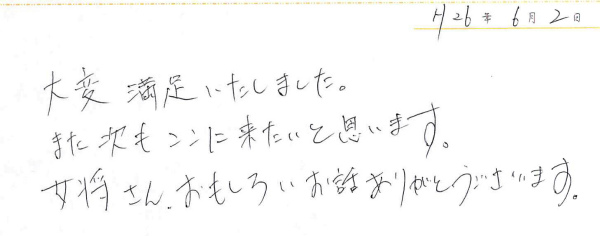 H26年 6月2日
大変 満足いたしました。
また次もココに来たいと思います。
女将さん、おもしろいお話ありがとうございます。